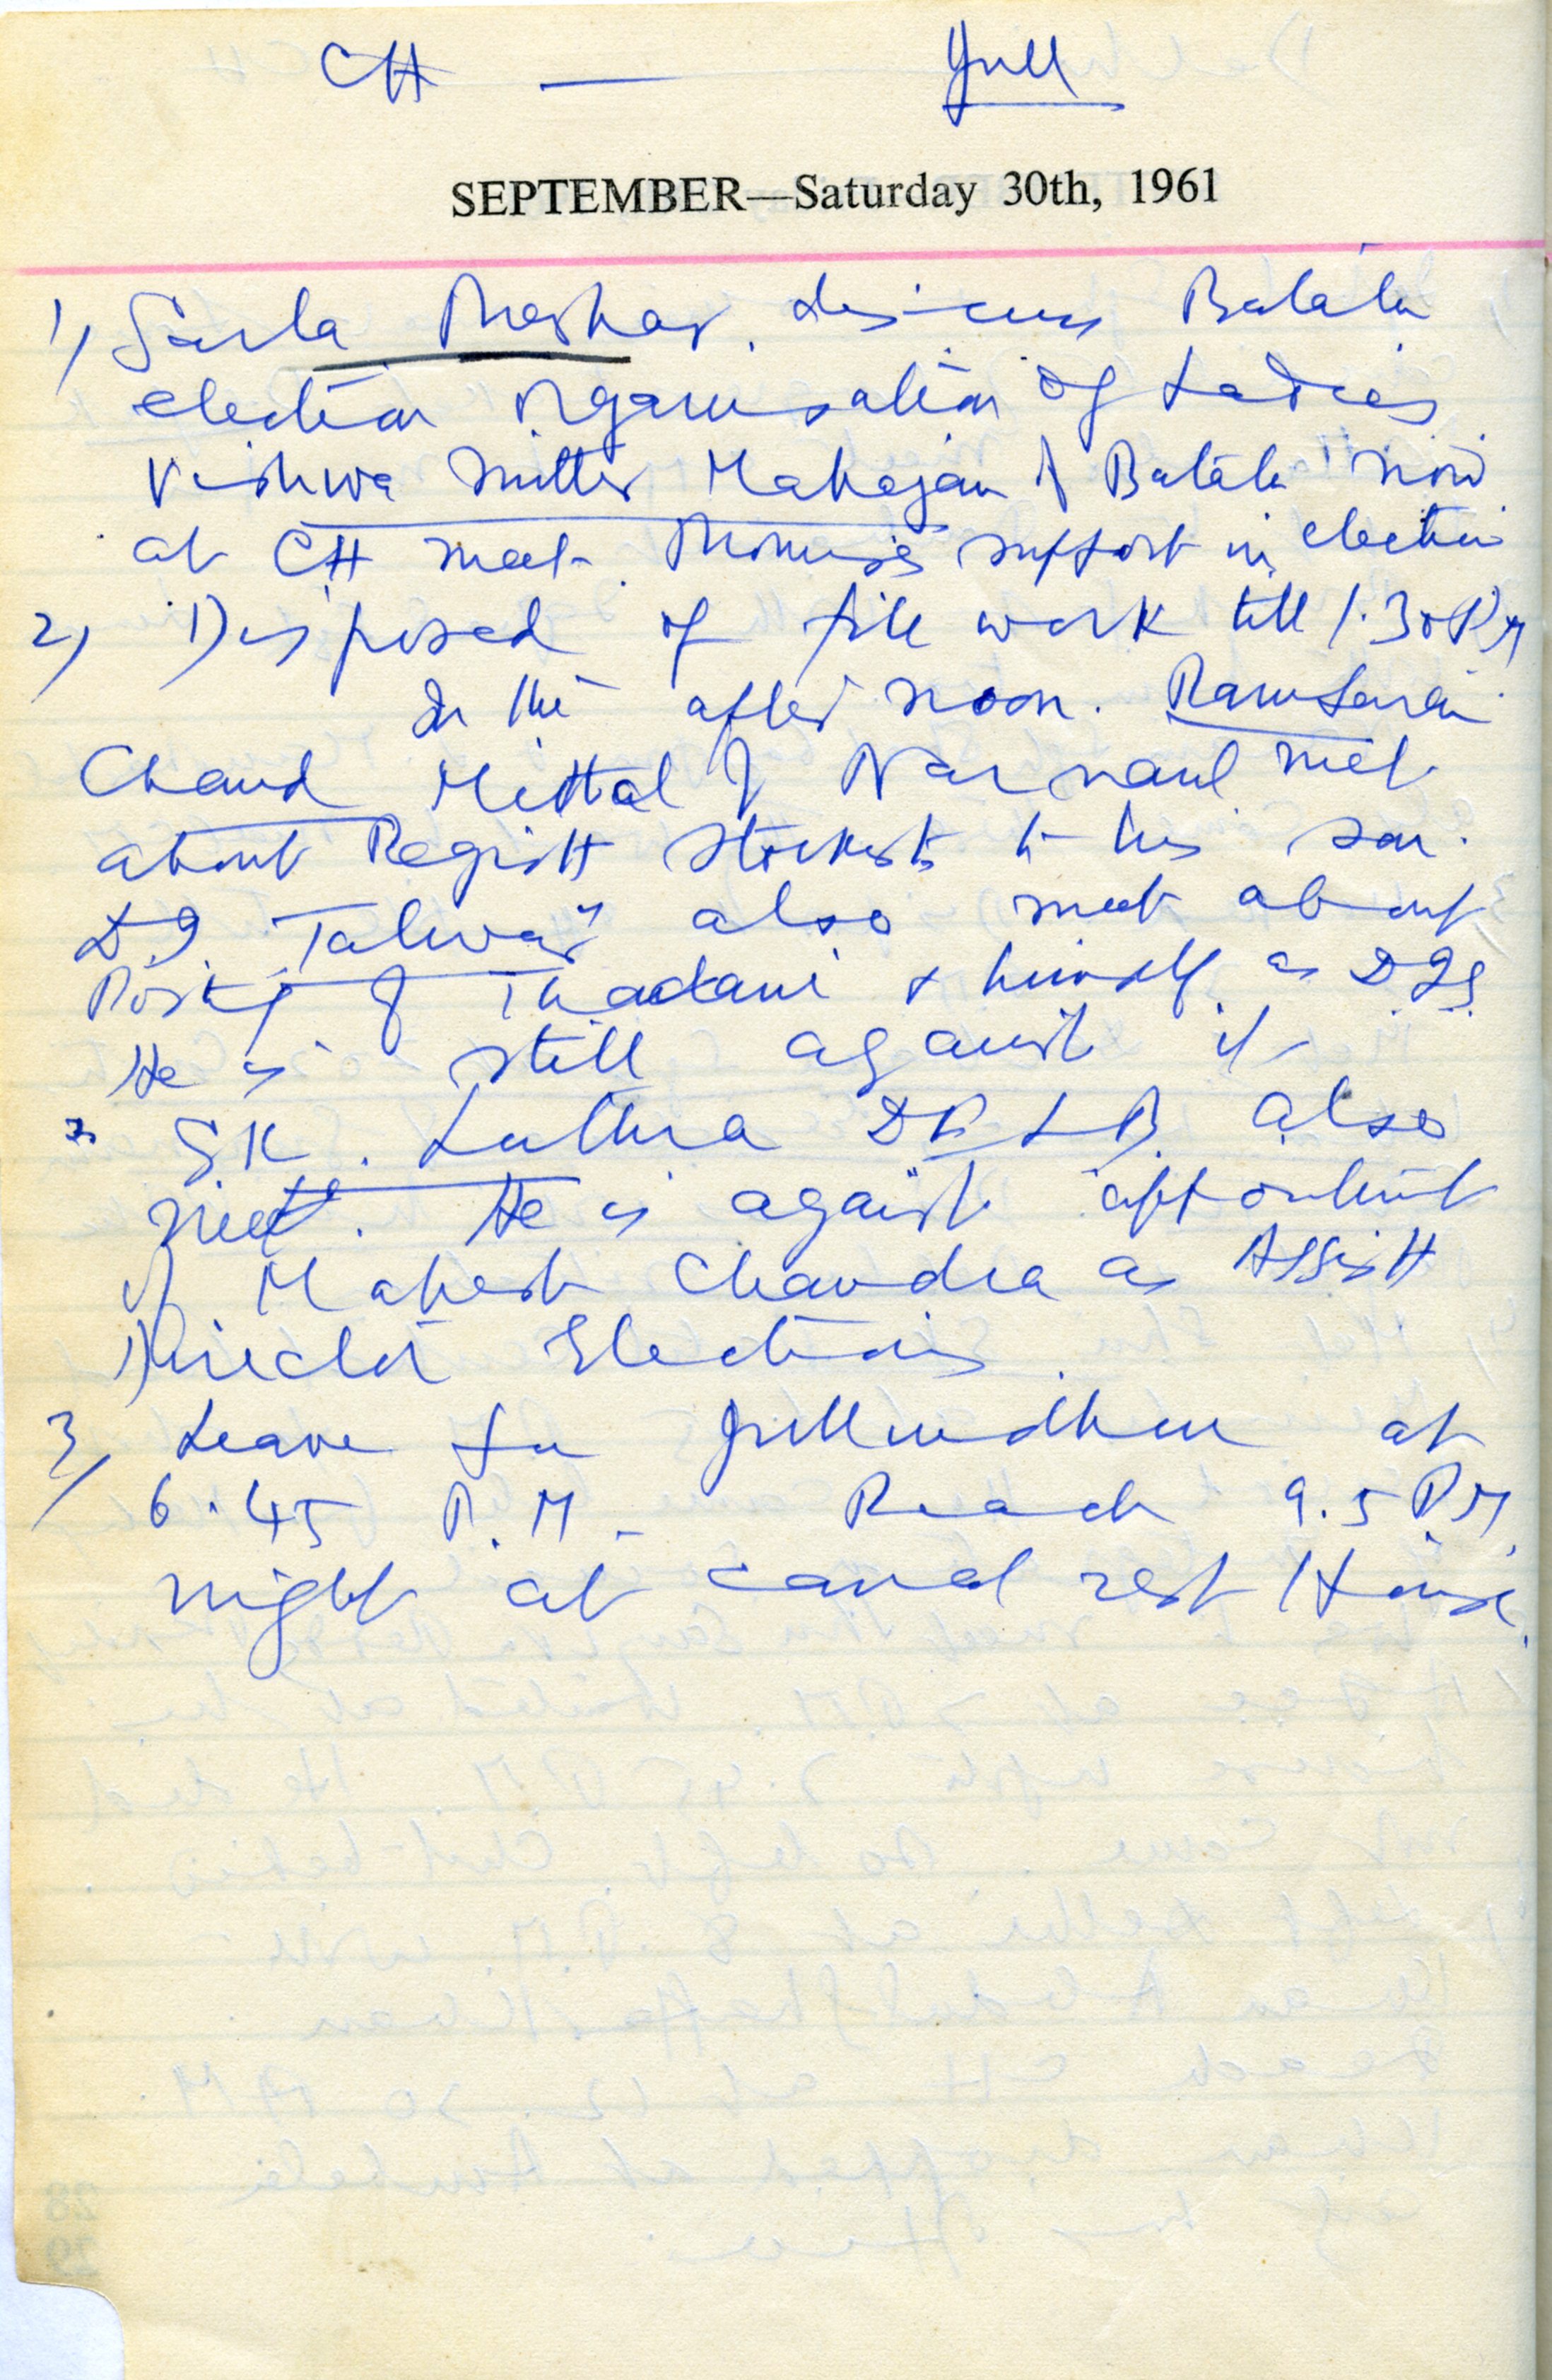 CH — Jull
SEPTEMBER—Saturday 30th, 1961
1) Sarla Prashar. discuss Batala
election organisation of Ladies
Vishwa Mitter Mahajan of Batala now
at CH meet. Promises support in election
2) Disposed of file work till 1.30 PM
In the after noon.
Chand Mittal of Narnaul met
about stockists to his son.
D.D. Talwar also meet about
Posting of Thadani & himself as
He is still against it
S K. Luthra also
meet. He is against appointment
of Mahesh Chandra as Assistt
Director Elections.
3) Leave for Jullundhur at
6.45 P.M. – Reach 9.5 PM.
night at canal rest House.